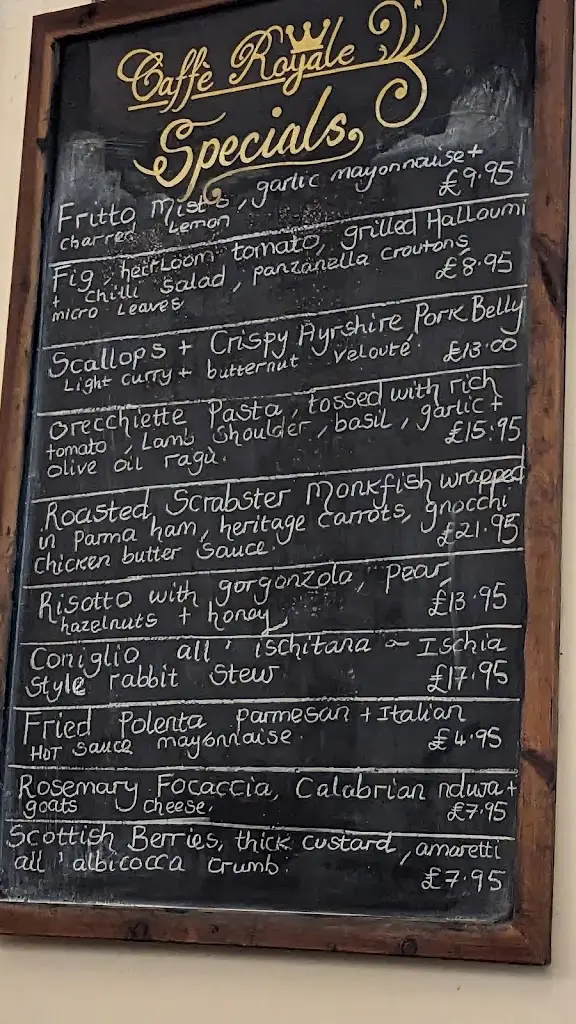 Caffè Royale
Specials
Fritto Misto, garlic mayonnaise +
charred Lemon £9.95
Fig, heirloom tomato, grilled Halloumi
+ chilli salad, panzanella croutons
micro leaves £8.95
Scallops + Crispy Ayrshire Pork Belly
Light curry + butternut veloute. £13.00
Orecchiette Pasta, tossed with rich
tomato, Lamb Shoulder, basil, garlic +
olive oil ragù. £15.95
Roasted Scrabster Monkfish wrapped
in Parma ham, heritage carrots, gnocchi
chicken butter sauce. £21.95
Risotto with gorgonzola, pear,
hazelnuts + honey £13.95
Coniglio all' ischitana ~ Ischia
style rabbit stew £17.95
Fried Polenta Parmesan + Italian
Hot sauce mayonnaise. £4.95
Rosemary Focaccia, Calabrian nduva +
goats cheese. £7.95
Scottish Berries, thick custard, amaretti
all' albicocca crumb. £7.95